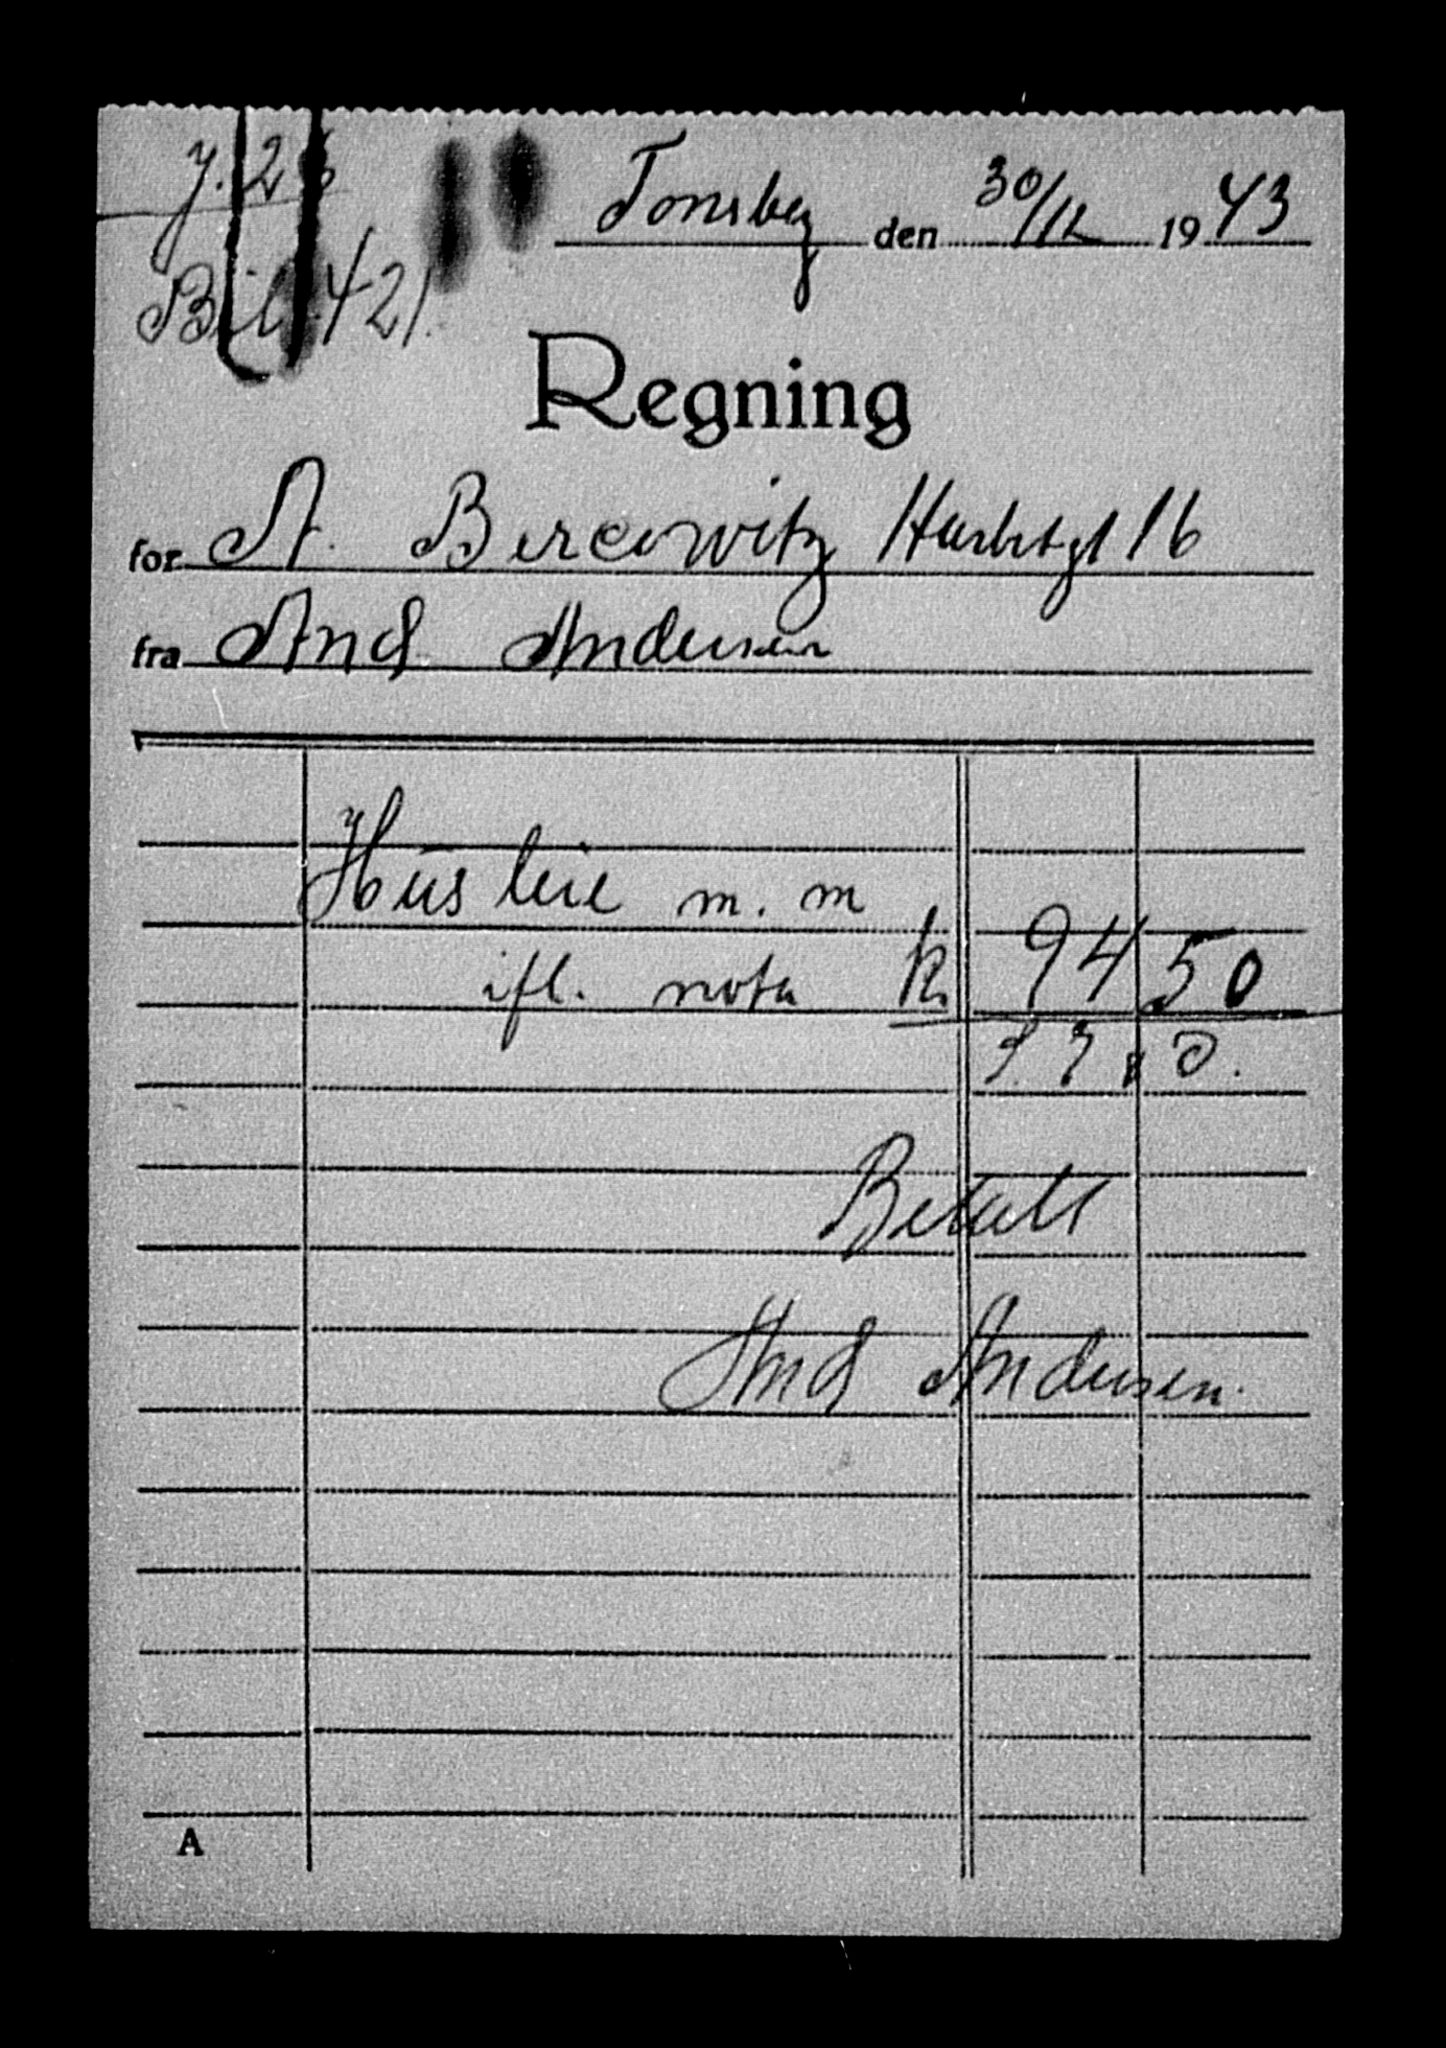 J. 28
Bil. 421.
Tønsberg den 30/12 1943
Regning
for A. Bercowitz 16
fra And Andersen
Husleie m. m
ifl. nota kr. 94 50
Betalt
And Andersen.
A